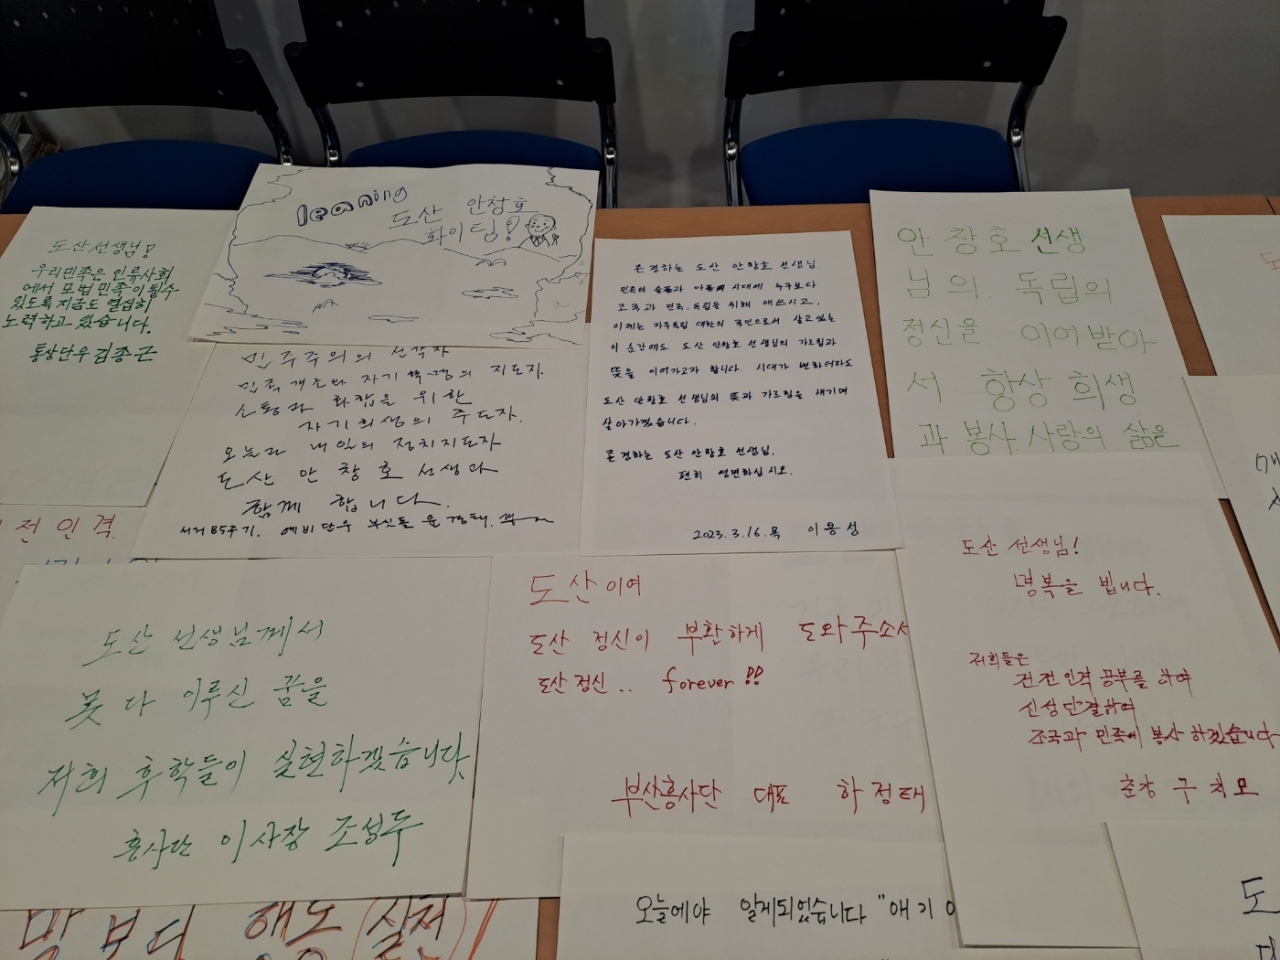 도산선생님!
우리민족은 인류사회
에서 모범민족이 될수
있도록 지금도 열심히
노력하고 있습니다.
통상단우 김종근
leaning
도산 안창호
화이팅!
민주주의의 선각자
민족개조와 자기혁명의 지도자
소통과 화합을 위한
자기희생의 주도자.
오늘과 내일의 정치지도자
도산 안창호 선생과
함께 합니다.
서거 85주기. 예비단우
존경하는 도산 안창호 선생님.
민족의 슬픔과 아픔의 시대에 누구보다
조국과 민족, 독립을 위해 애쓰시고,
이제는 자주독립 대한의 국민으로서 살고있는
이 순간에도 도산 안창호 선생님의 가르침과
뜻을 이어가고자 합니다. 시대가 변하더라도
도산 안창호 선생님의 뜻과 가르침을 새기며
살아가겠습니다.
존경하는 도산 안창호 선생님.
편히 영면하십시오.
2023.3.16.목 이용성
안창호 선생
님의 독립의
정신을 이어받아
서 항상 희생
과 봉사, 사랑의 삶을
전인격
도산 선생님께서
못다 이루신 꿈을
저희 후학들이 실현하겠습니다.
흥사단 이사장 조성두
도산이여
도산 정신이 부활하게 도와주소서
도산정신.. forever!!
부산흥사단 대표 하정태
도산 선생님!
명복을 빕니다.
저희들은
건전인격 공부를 하여
신성단결하여
조국과 민족에 봉사하겠습니다
춘강 구치모
말보다 행동(실천)
오늘에야 알게되었습니다 "애기
도